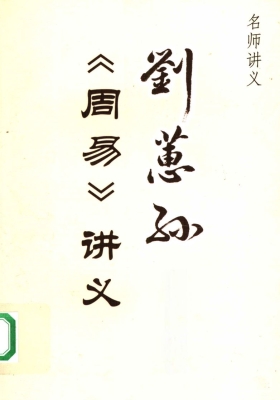 名师讲义
劉蕙孙
《周易》讲义